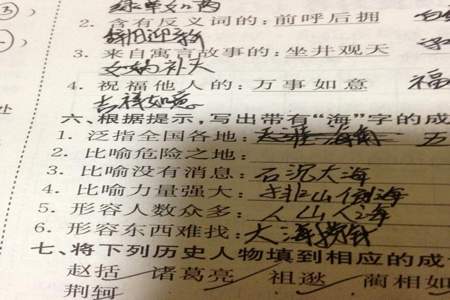 2. 含有反义词的:前呼后拥
辞旧迎新
3. 来自寓言故事的:坐井观天
女娲补天
4. 祝福他人的:万事如意 福
吉祥如意
六、根据提示,写出带有“海”字的成
1. 泛指全国各地: 五
2. 比喻危险之地:
3. 比喻没有消息:石沉大海
4. 比喻力量强大:排山倒海
5. 形容人数众多:人山人海
6. 形容东西难找:大海捞针
七、将下列历史人物填到相应的成
赵括 诸葛亮 祖逖 蔺相如
荆轲